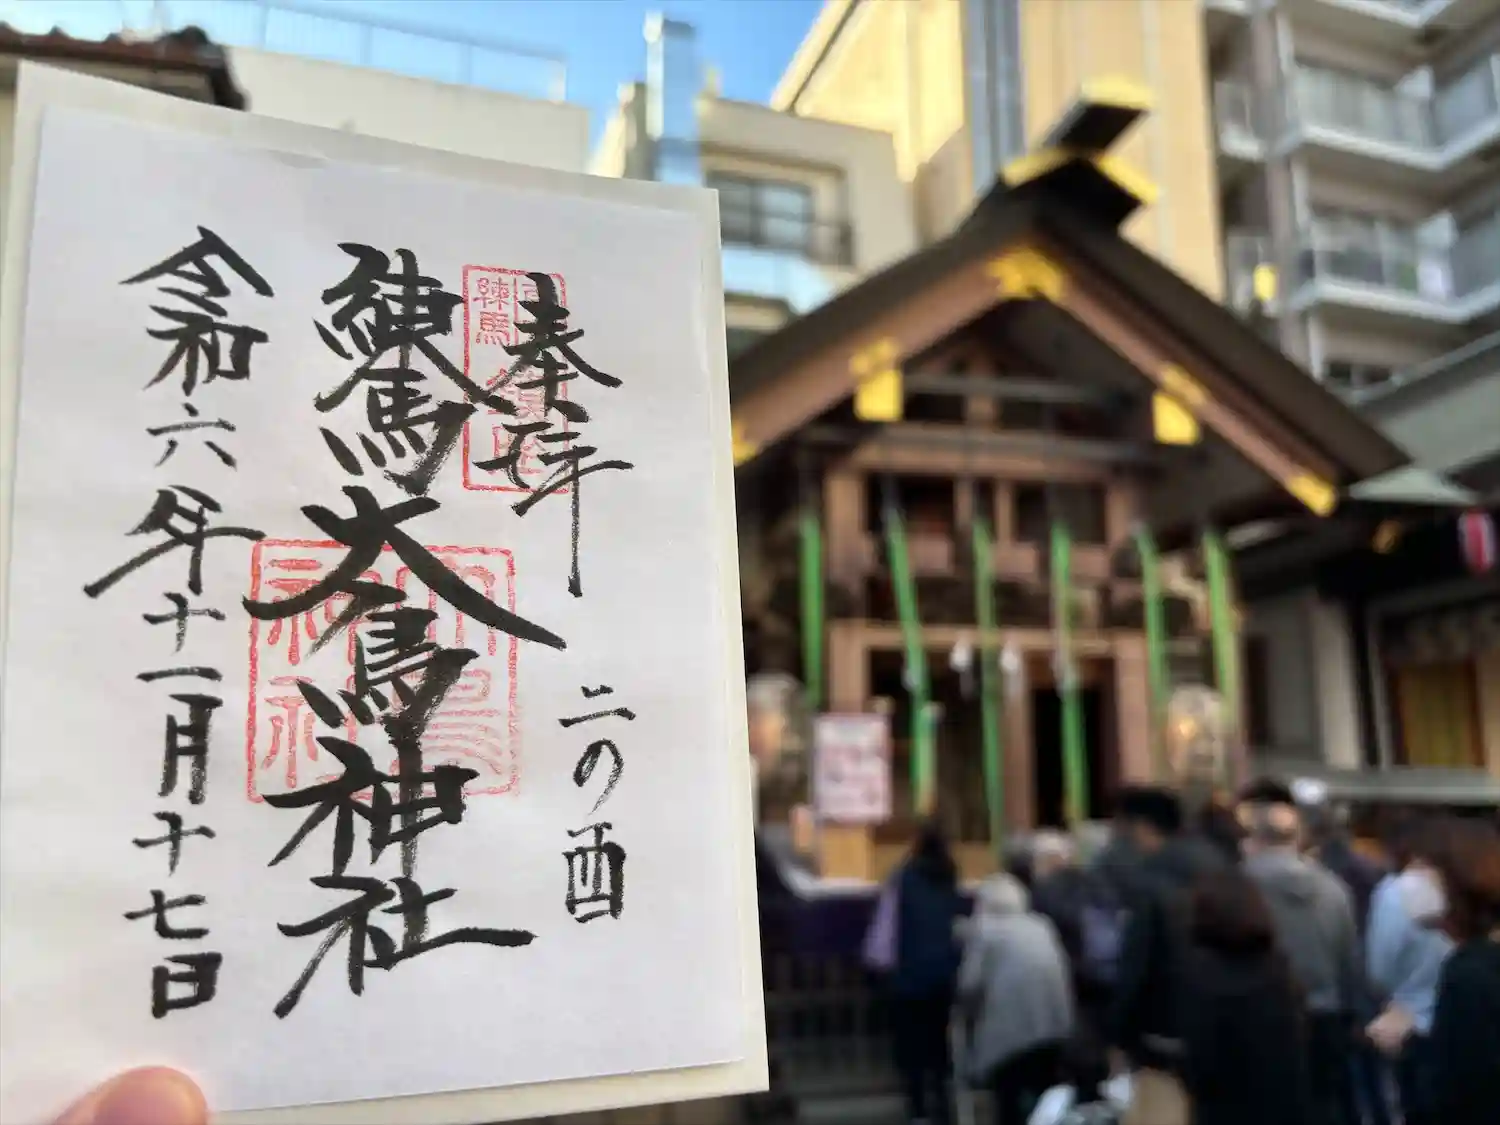 奉拝
二の酉
練馬大鳥神社
令和六年十一月十七日
練馬
大鳥
神社